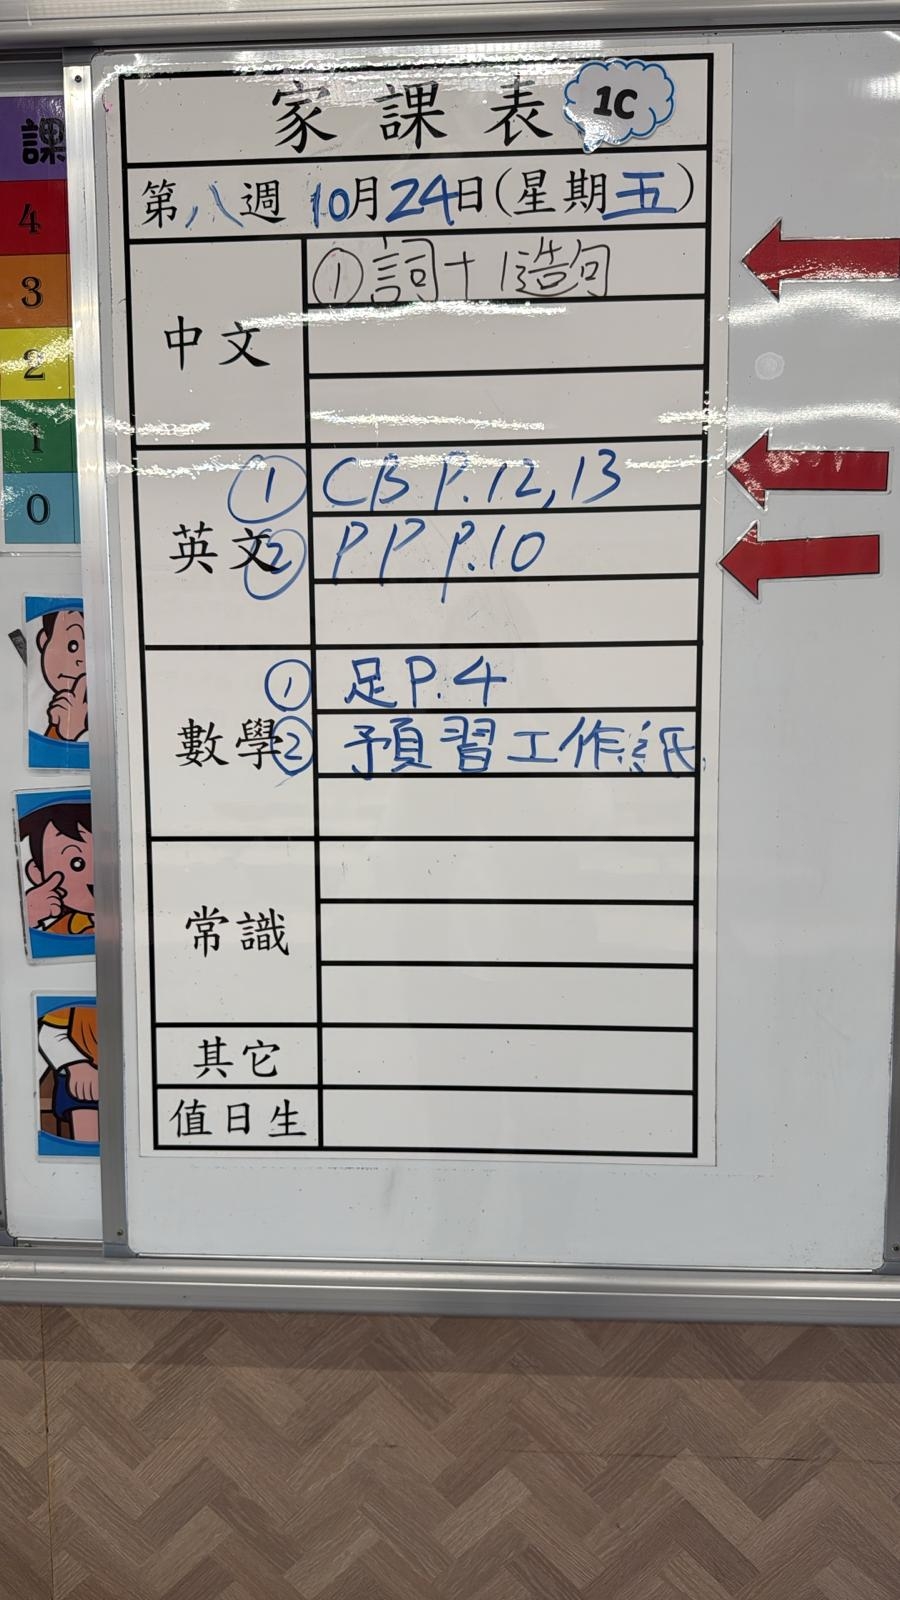 課
4
3
2
1
0
家課表 1C
第八週 10月24日(星期五)
中文
①詞十1造句
英文
① CB P.12,13
② PP P.10
數學
① 足P.4
② 預習工作紙
常識
其它
值日生